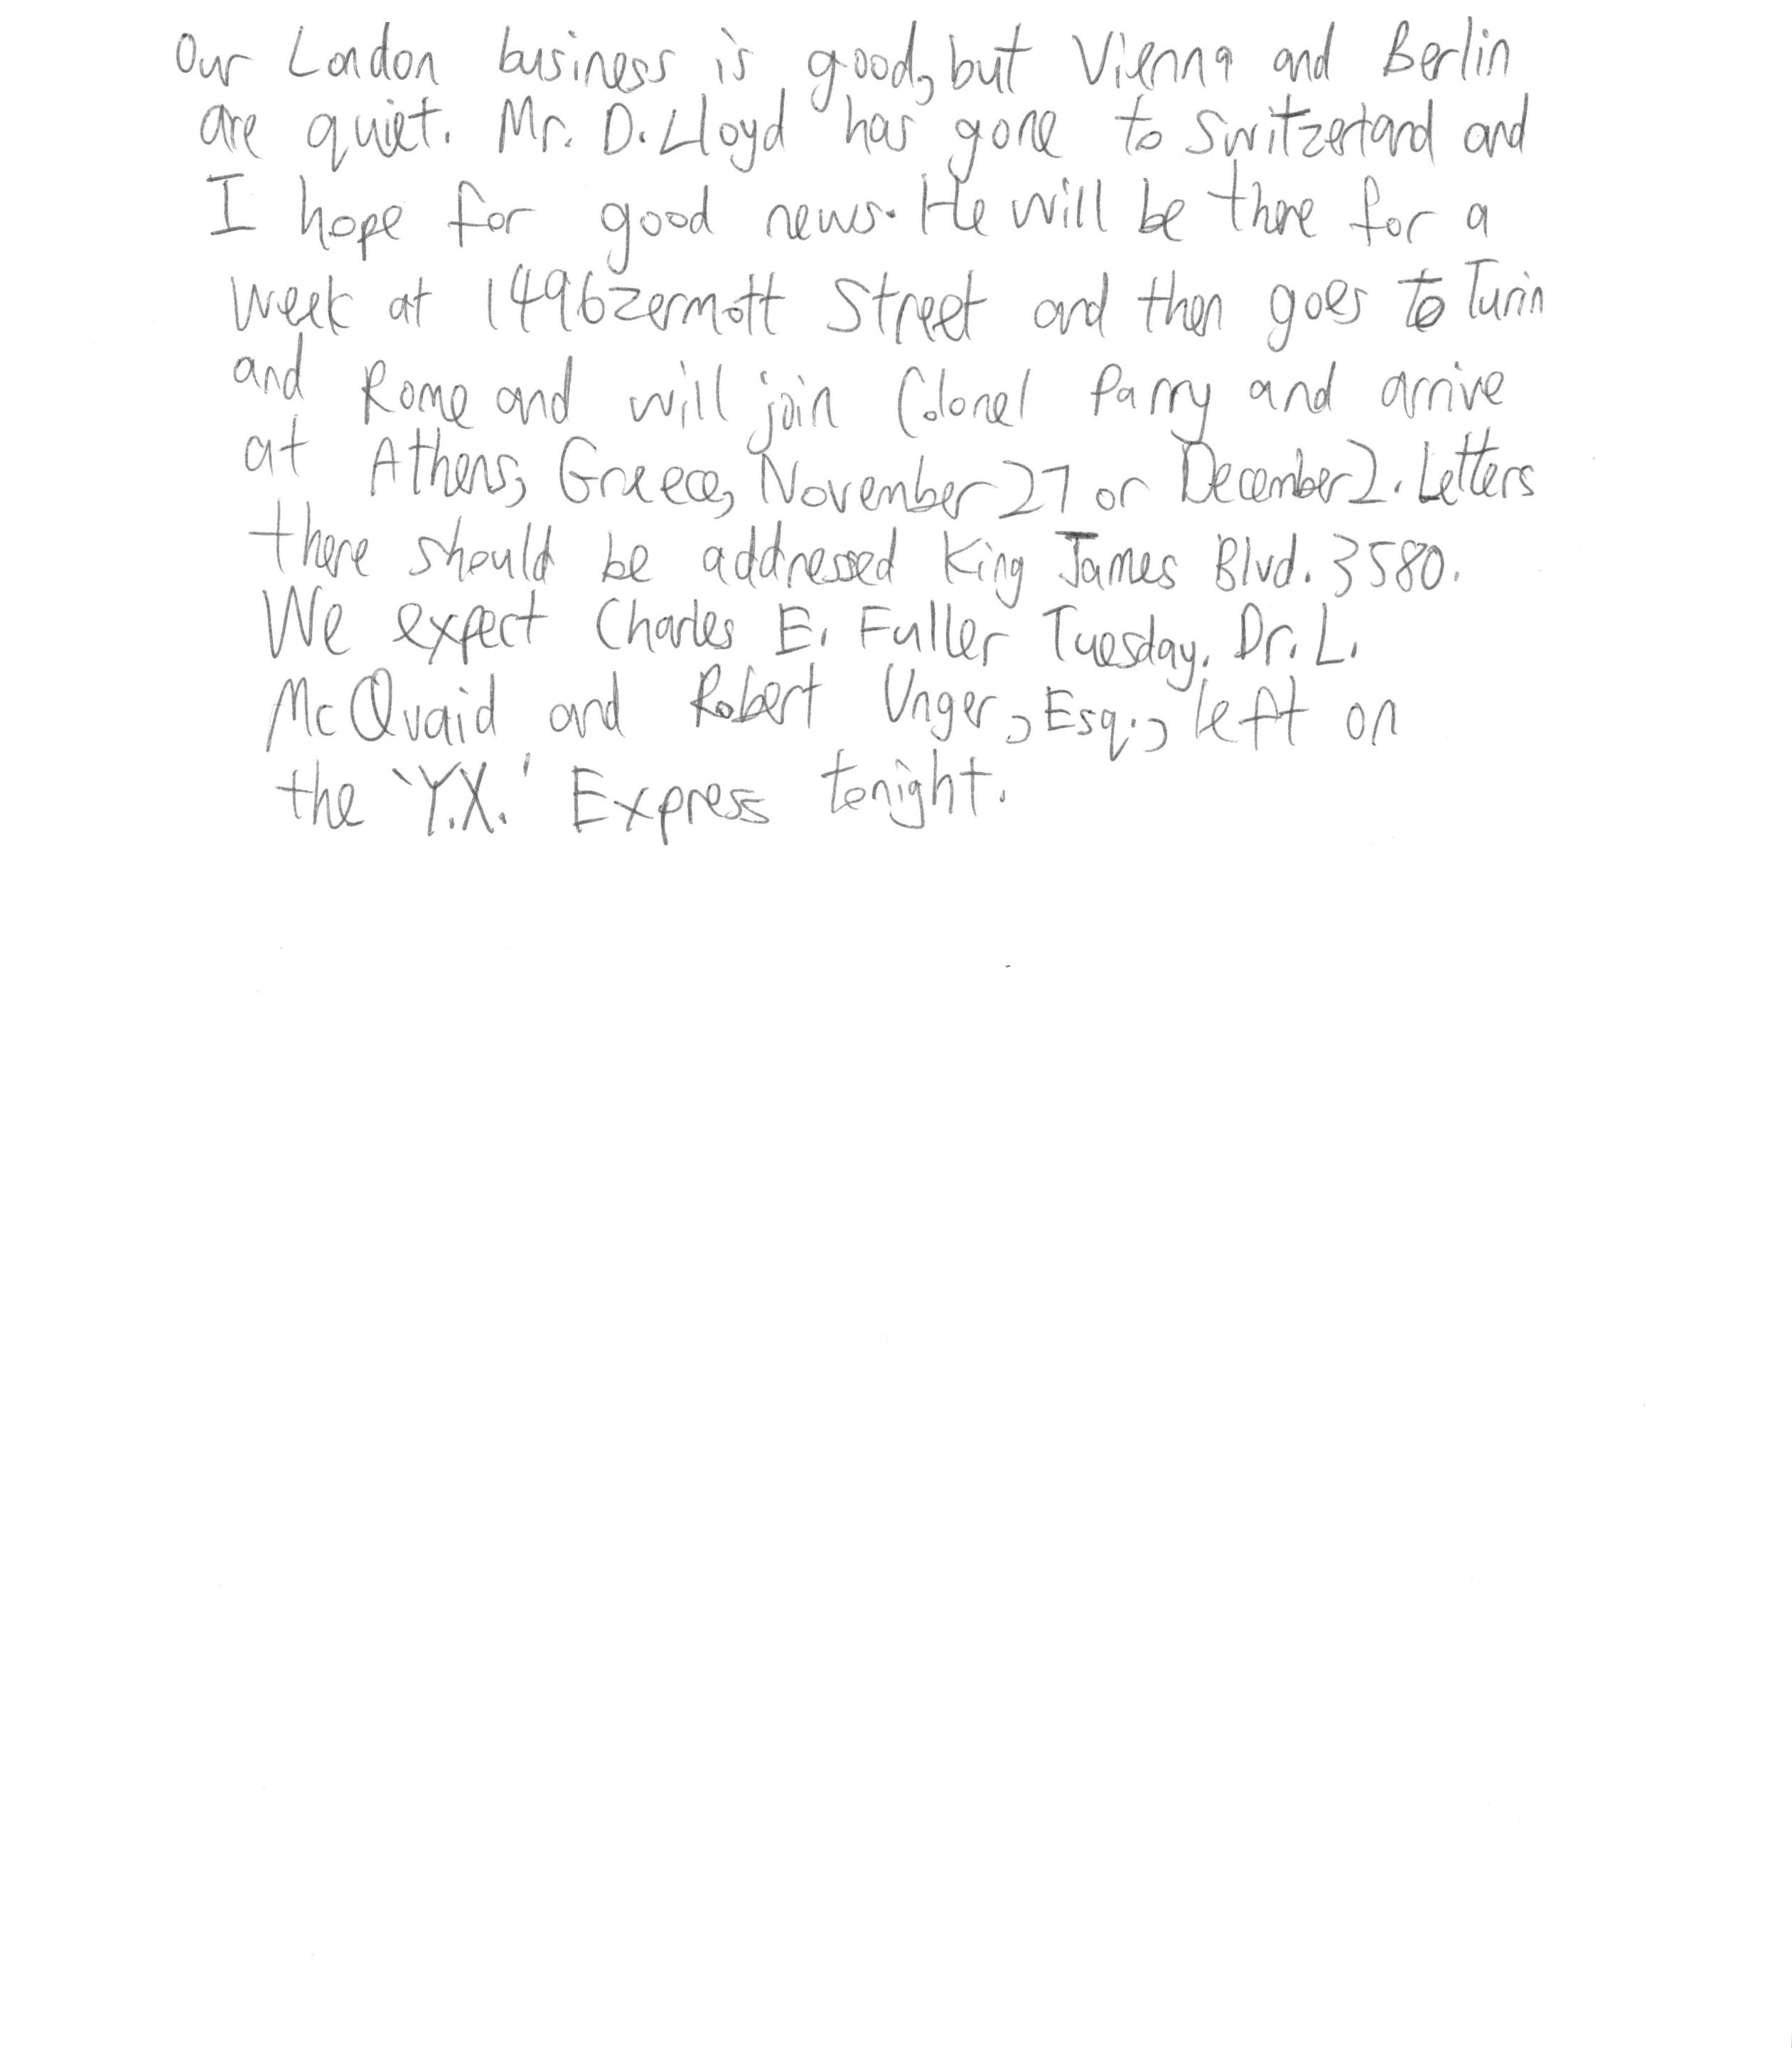 Our London business is good, but Vienna and Berlin
are quiet. Mr. D. Lloyd has gone to Switzerland and
I hope for good news. He will be there for a
week at 1496 zermott Street and then goes to Turin
and Rome and will join Colonel Parry and arrive
at Athens, Greece, November 27 or December 2. Letters
there should be addressed King James Blvd. 3580.
We expect Charles E. Fuller Tuesday. Dr. L.
McQuaid and Robert Unger, Esq., left on
the 'Y.X.' Express tonight.